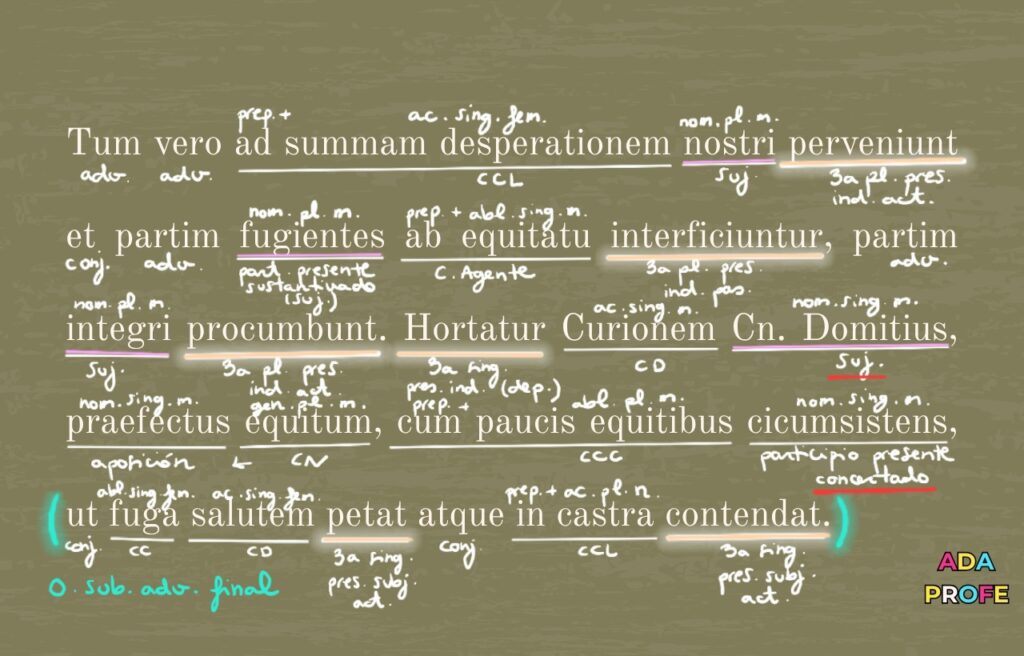 prep. + ac. sing. fem. nom. pl. m.
Tum vero ad summam desperationem nostri perveniunt
adv. adv. CCL Suj. 3a pl. pres.
ind. act.
nom. pl. m. prep. + abl. sing. m.
et partim fugientes ab equitatu interficiuntur, partim
conj. adv. part. presente C. Agente 3a pl. pres. adv.
sustantivado ind. pas.
(suj.)
nom. pl. m. ac. sing. m. nom. sing. m.
integri procumbunt. Hortatur Curionem Cn. Domitius,
Suj. 3a pl. pres. 3a sing. CD Suj.
ind. act. pres. ind. (dep.)
nom. sing. m. gen. pl. m. prep. + abl. pl. m. nom. sing. m.
praefectus equitum, cum paucis equitibus cicumsistens,
aposición ← CN CCC participio presente
concertado
abl. sing. fem. ac. sing. fem. prep. + ac. pl. n.
(ut fuga salutem petat atque in castra contendat.)
conj. CC CD 3a sing. conj. CCL 3a sing.
pres. subj. pres. subj.
act. act.
O. sub. adv. final
ADA
PROFE